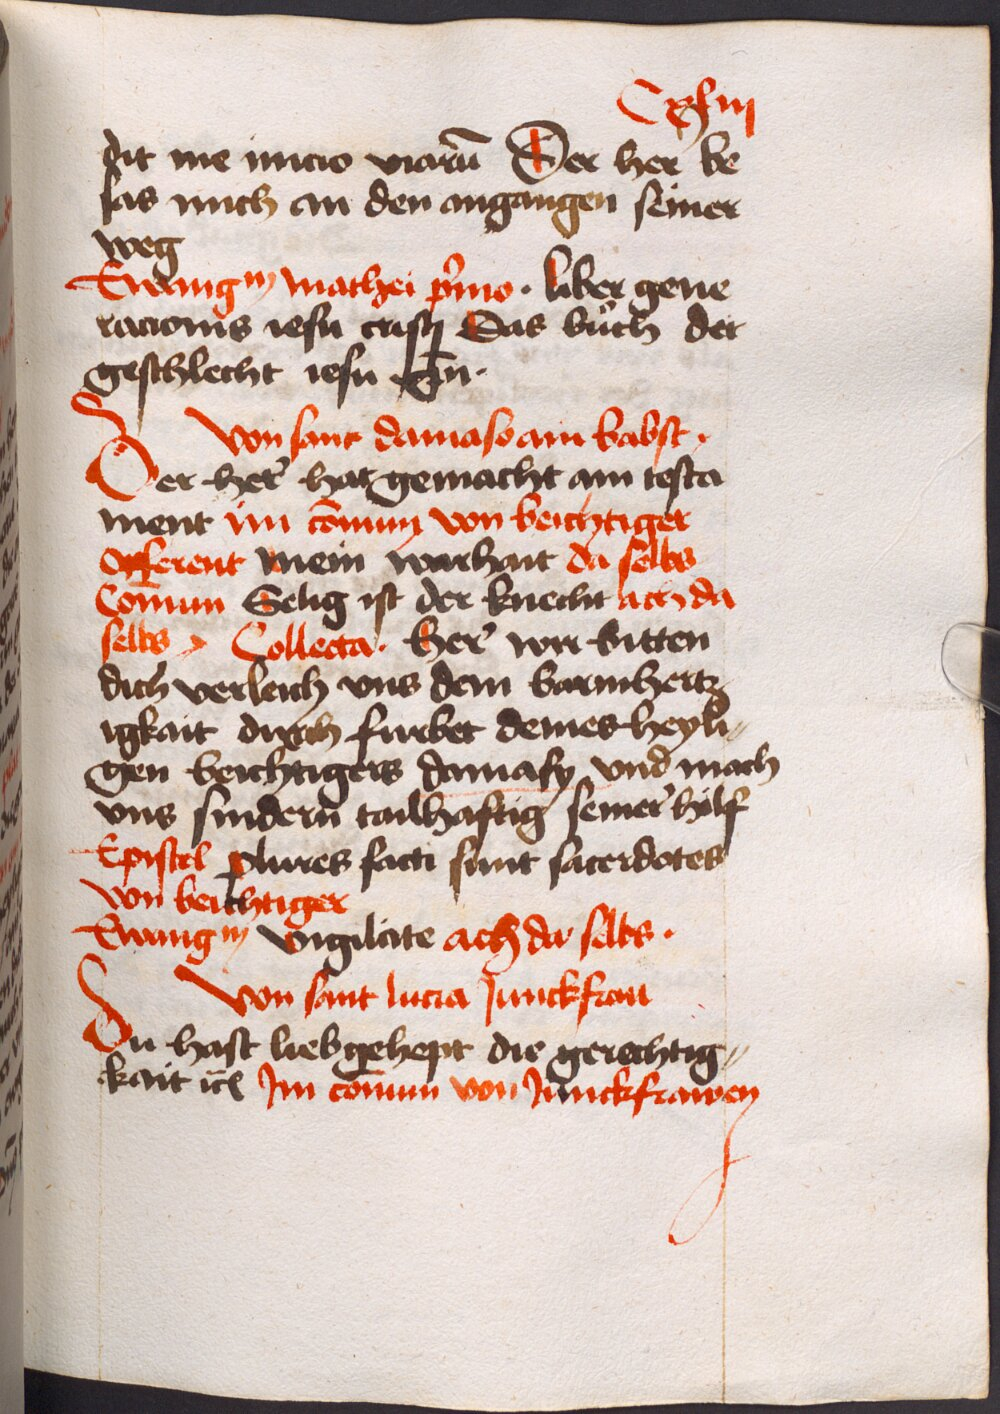 Cxliiij
dit me inicio viarū Der her be
sas mich an den angangen seiner
weg
Ewangm mathei pͥmo · liber gene
racionis iesu cristi Das bůch der
geschlecht iesu
Von sant damaso aim babst ·
Der her hat gemacht ain testa
ment im cōmun von beichtiger
Offerent mein warhait da selbs
Comūn Selig ist der knecht ach da
selbs Collecta · her wir bitten
dich verleich vns dein barmhertz
igkait durch furbet deines heyli
gen beichtigers damasy vnd mach
vns sindern tailhaftig seiner hilf
Epistel plures facti sunt sacerdotes
von beichtiger
Ewangm vigilate ach da selbs ·
Von sant lucia Junckfrau
Du hast lieb gehept die gerechtig
kait ic̄ Im comūn von Junckfrawen